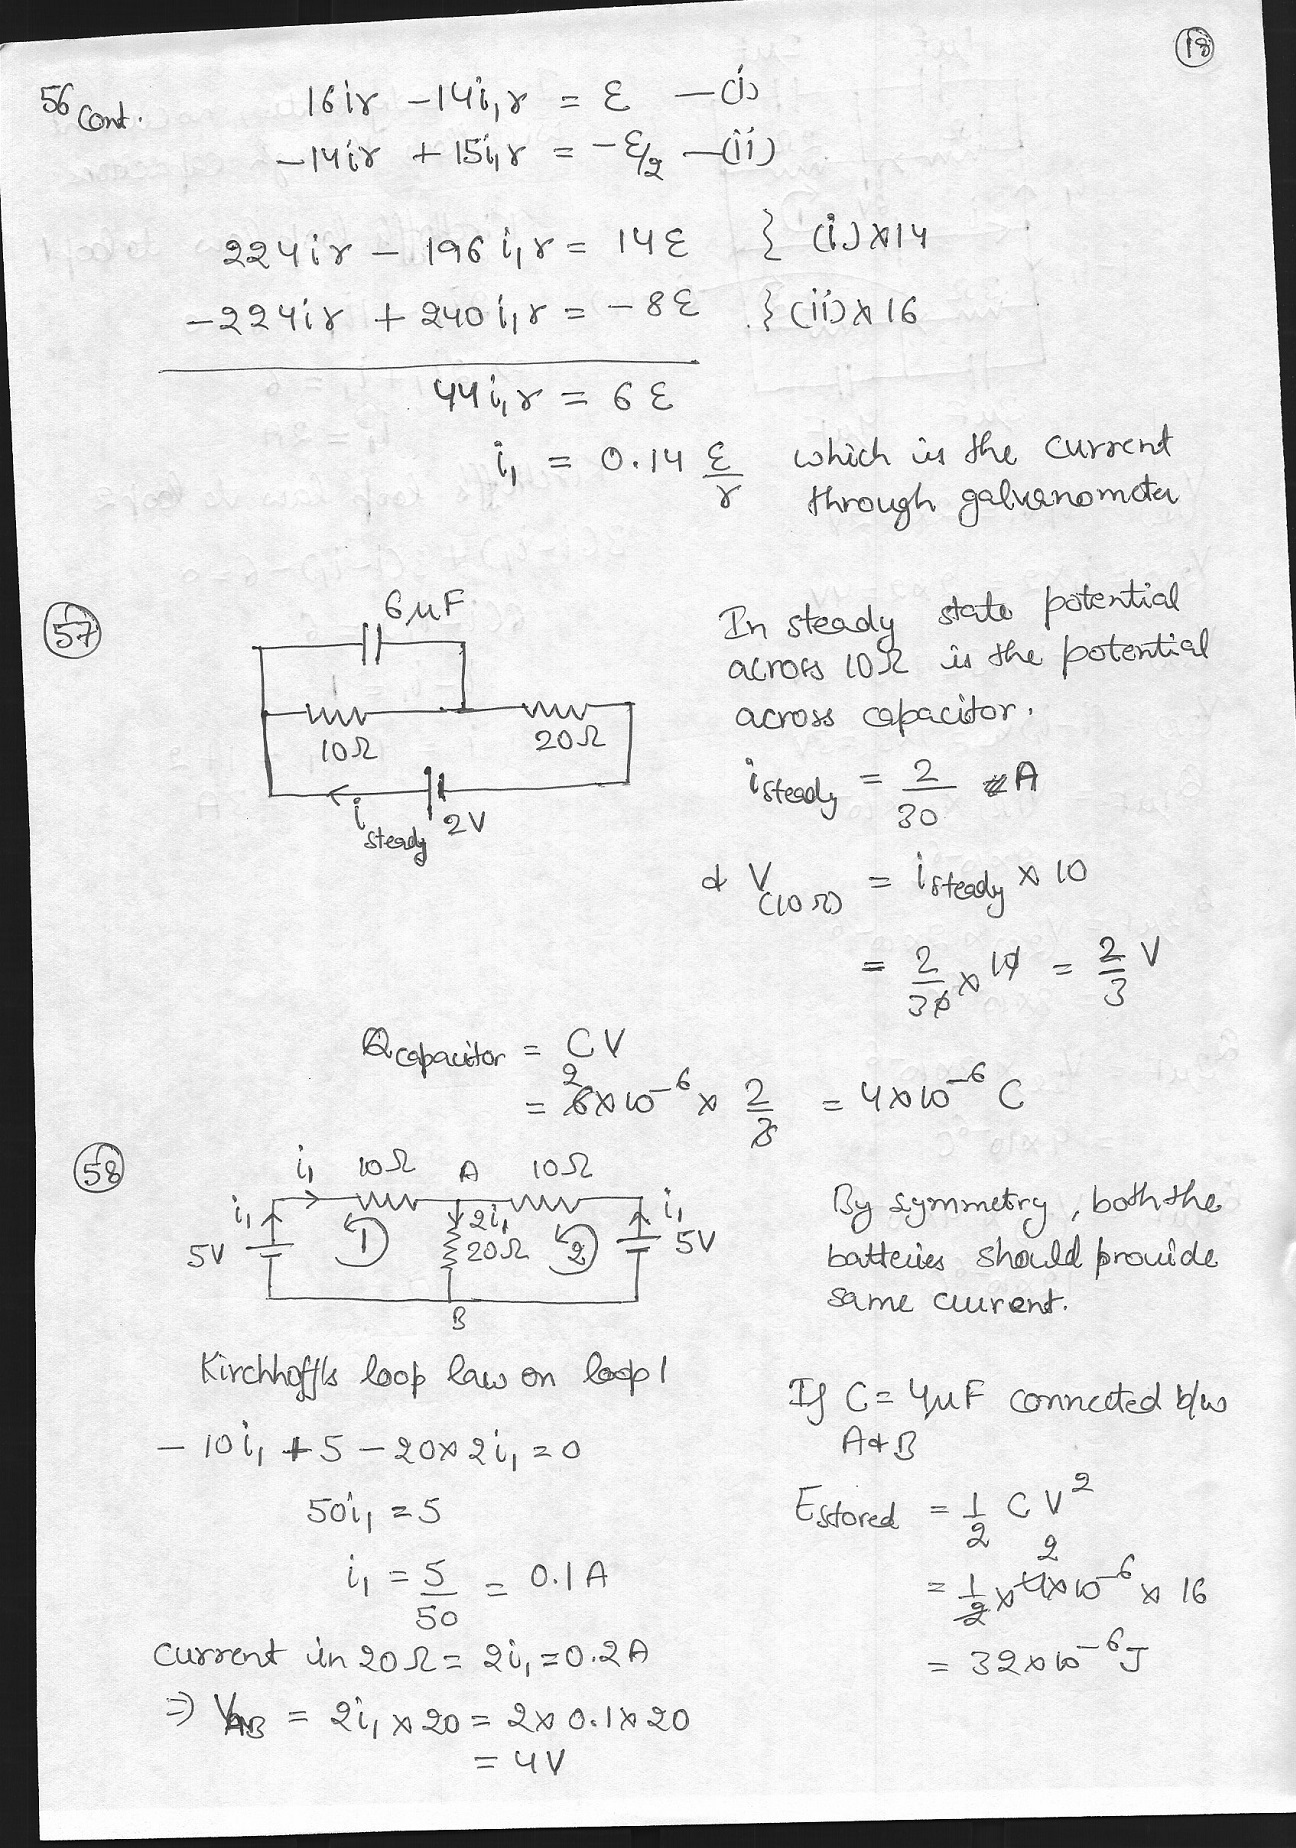 18
56 Cont.
16ir - 14i₁r = ε —(i)
-14ir + 15i₁r = -ε/2 —(ii)
224ir - 196 i₁r = 14ε } (i)×14
-224ir + 240 i₁r = -8ε } (ii)×16
44i₁r = 6ε
i₁ = 0.14 ε/r which is the current
through galvanometer
57
6μF
10Ω
20Ω
i steady
2V
In steady state potential
across 10Ω is the potential
across capacitor.
i steady = 2/30 A
& V(10Ω) = i steady × 10
= 2/30 × 10 = 2/3 V
Q capacitor = CV
= 6×10⁻⁶ × 2/3 = 4×10⁻⁶ C
2
58
i₁ 10Ω A 10Ω
i₁ 5V 1 2i₁ 20Ω 2 i₁ 5V
B
By symmetry, both the
batteries should provide
same current.
Kirchhoff's loop law on loop 1
- 10i₁ + 5 - 20×2i₁ = 0
50i₁ = 5
i₁ = 5/50 = 0.1A
current in 20Ω = 2i₁ = 0.2A
⇒ V_AB = 2i₁ × 20 = 2×0.1×20
= 4V
If C = 4μF connected b/w
A & B
E stored = 1/2 C V²
2
= 1/2 × 4×10⁻⁶ × 16
= 32×10⁻⁶ J